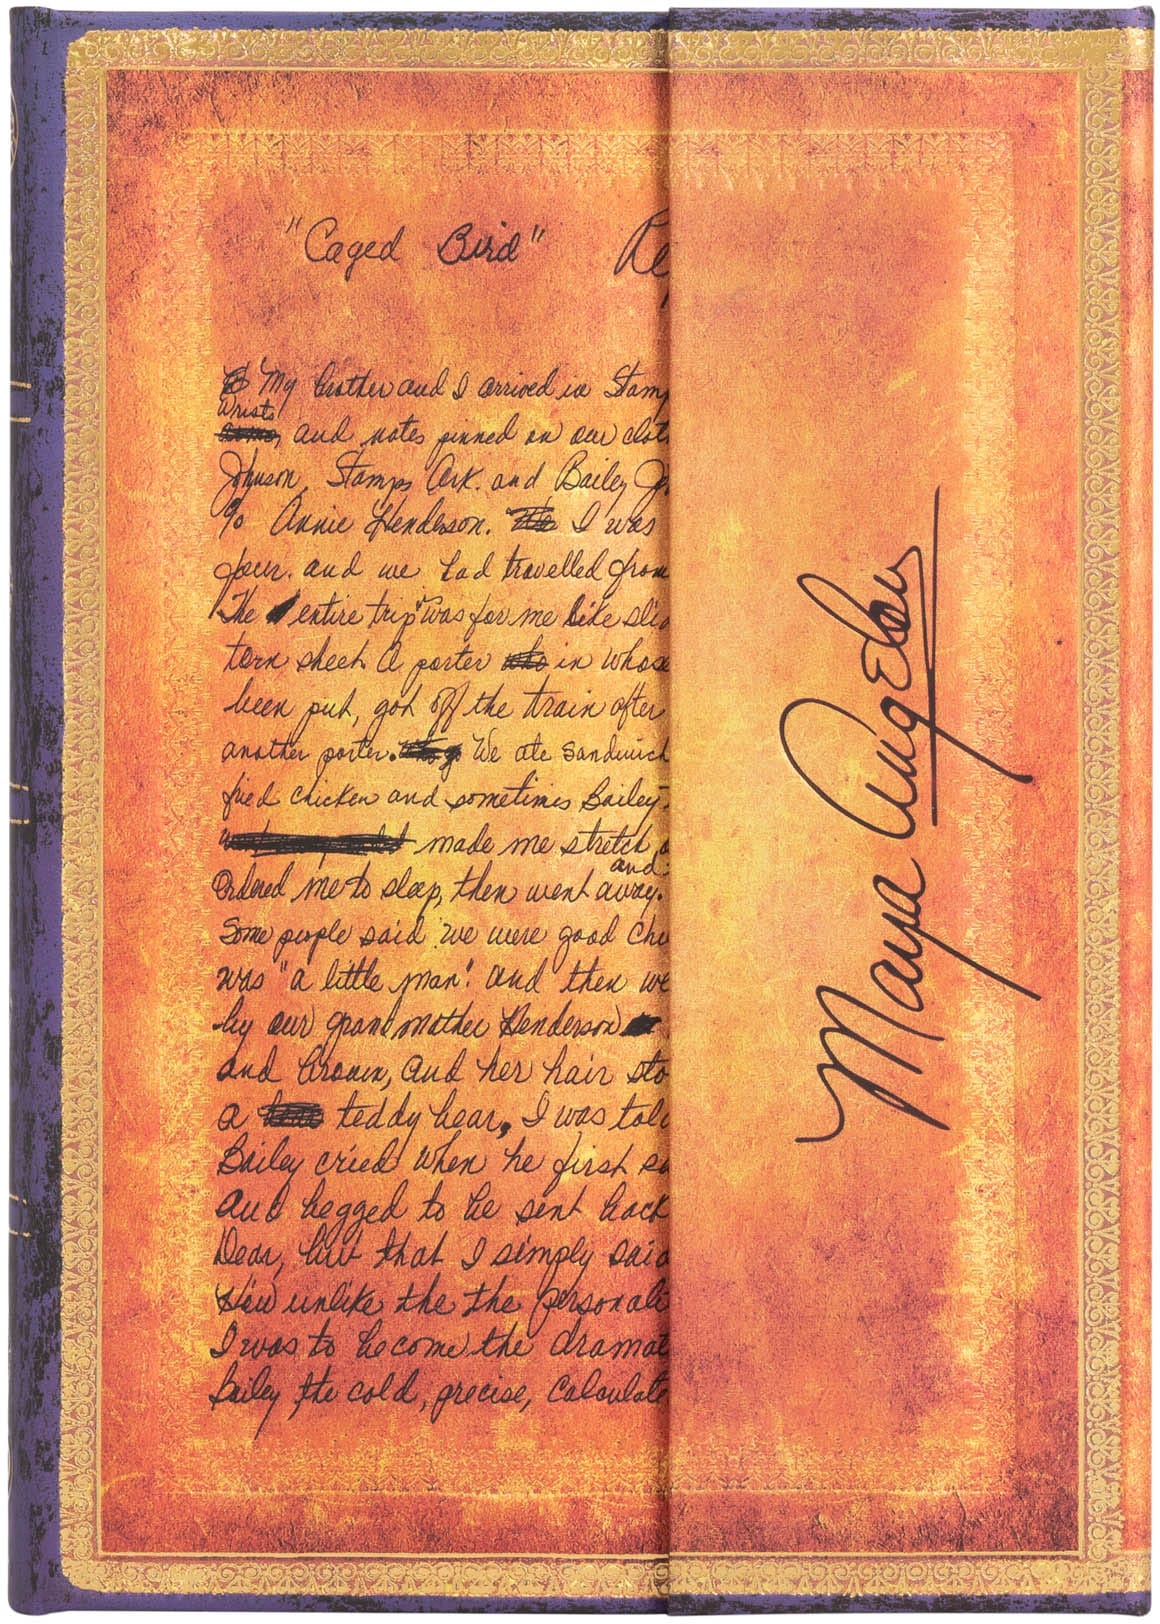 "Caged Bird" Re
My brother and I arrived in Stam
wrists
and notes pinned on our clot
Johnson, Stamps Ark. and Bailey Jo
c/o Annie Henderson. I was
four. and we had travelled from
The entire trip was for me like sli
torn sheet. A porter in whose
been put, got off the train after
another porter. We ate sandwich
fried chicken and sometimes Bailey
made me stretch
and
ordered me to sleep, then went away.
Some people said we were good chi
was "a little man". and then we
by our grandmother Henderson
and brown, and her hair sto
a teddy bear, I was tol
Bailey cried when he first sa
and begged to be sent back
Dear, but that I simply said
How unlike the the personali
I was to become the dramat
Bailey the cold, precise, calculate
Maya Angelou